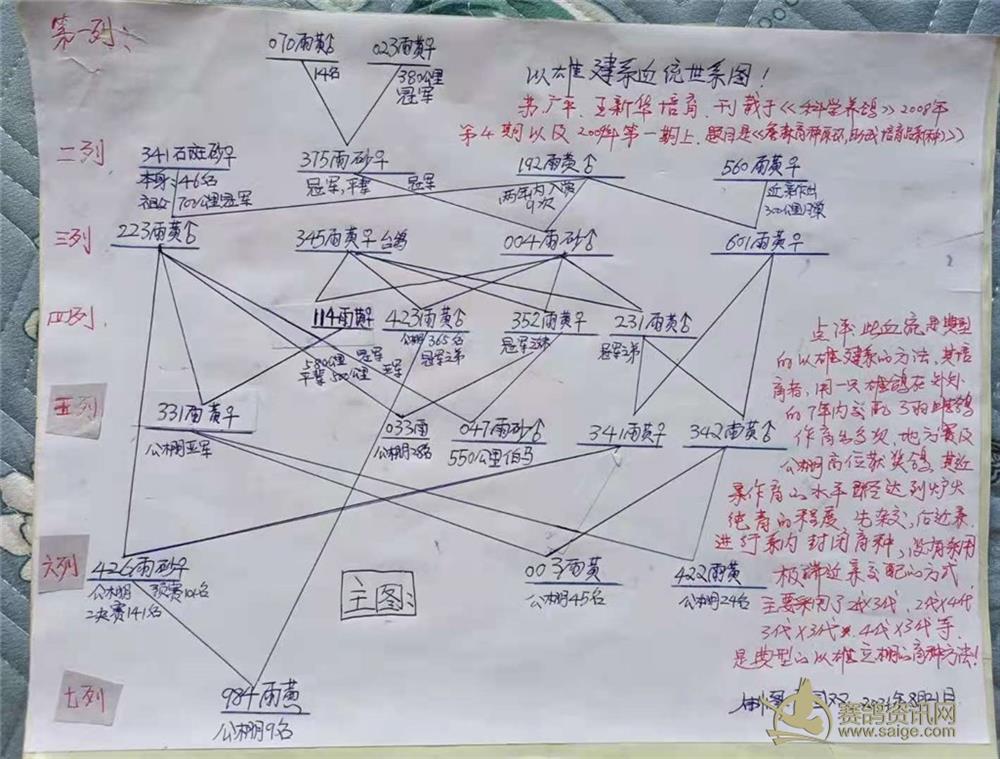 第一列:
070雨黄♂ 023雨黄♀
14名 380公里
冠军
以雄建系血统世系图!
王新华培育.刊载于《科学养鸽》2008年
第4期以及2009年第一期上.题目是
二列
341石斑砂♀ 375雨砂♀ 192雨黄♂ 560雨黄♀
本身:46名 冠军,平辈 冠军 两年内入赏 近系作出
祖父 700公里冠军 9次 300公里
三列
223雨黄♂ 345雨黄♀台鸽 004雨砂♂ 601雨黄♀
四列
114雨黄♀ 423雨黄♂ 352雨黄♀ 231雨黄♂
580公里 冠军 公棚365名 冠军之弟
平辈500公里 亚军 冠军之弟
五列
331雨黄♀ 033雨 047雨砂♂ 341雨黄♀ 342雨黄♂
公棚亚军 公棚28名 550公里伯马
六列
426雨砂♀ 003雨黄 422雨黄
公棚 预赛101名 公棚45名 公棚24名
决赛141名
主图:
七列
984雨黄
公棚9名
点评:此血统是典型
的以雄建系的方法,其培
育者,用一只雄鸽在
的7年内交配3羽雌鸽
作育出多次,地方赛及
公棚高位获奖鸽,其近
系作育的水平已经达到炉火
纯青的程度 先杂交,后近系.
进行系内封闭育种,没有采用
极端近系交配的方式
主要采用了2代X3代,2代X4代
3代X3代,4代X3代等.
是典型的以雄立棚的育种方法!
2021年8月21日
赛鸽资讯网
www.saige.com